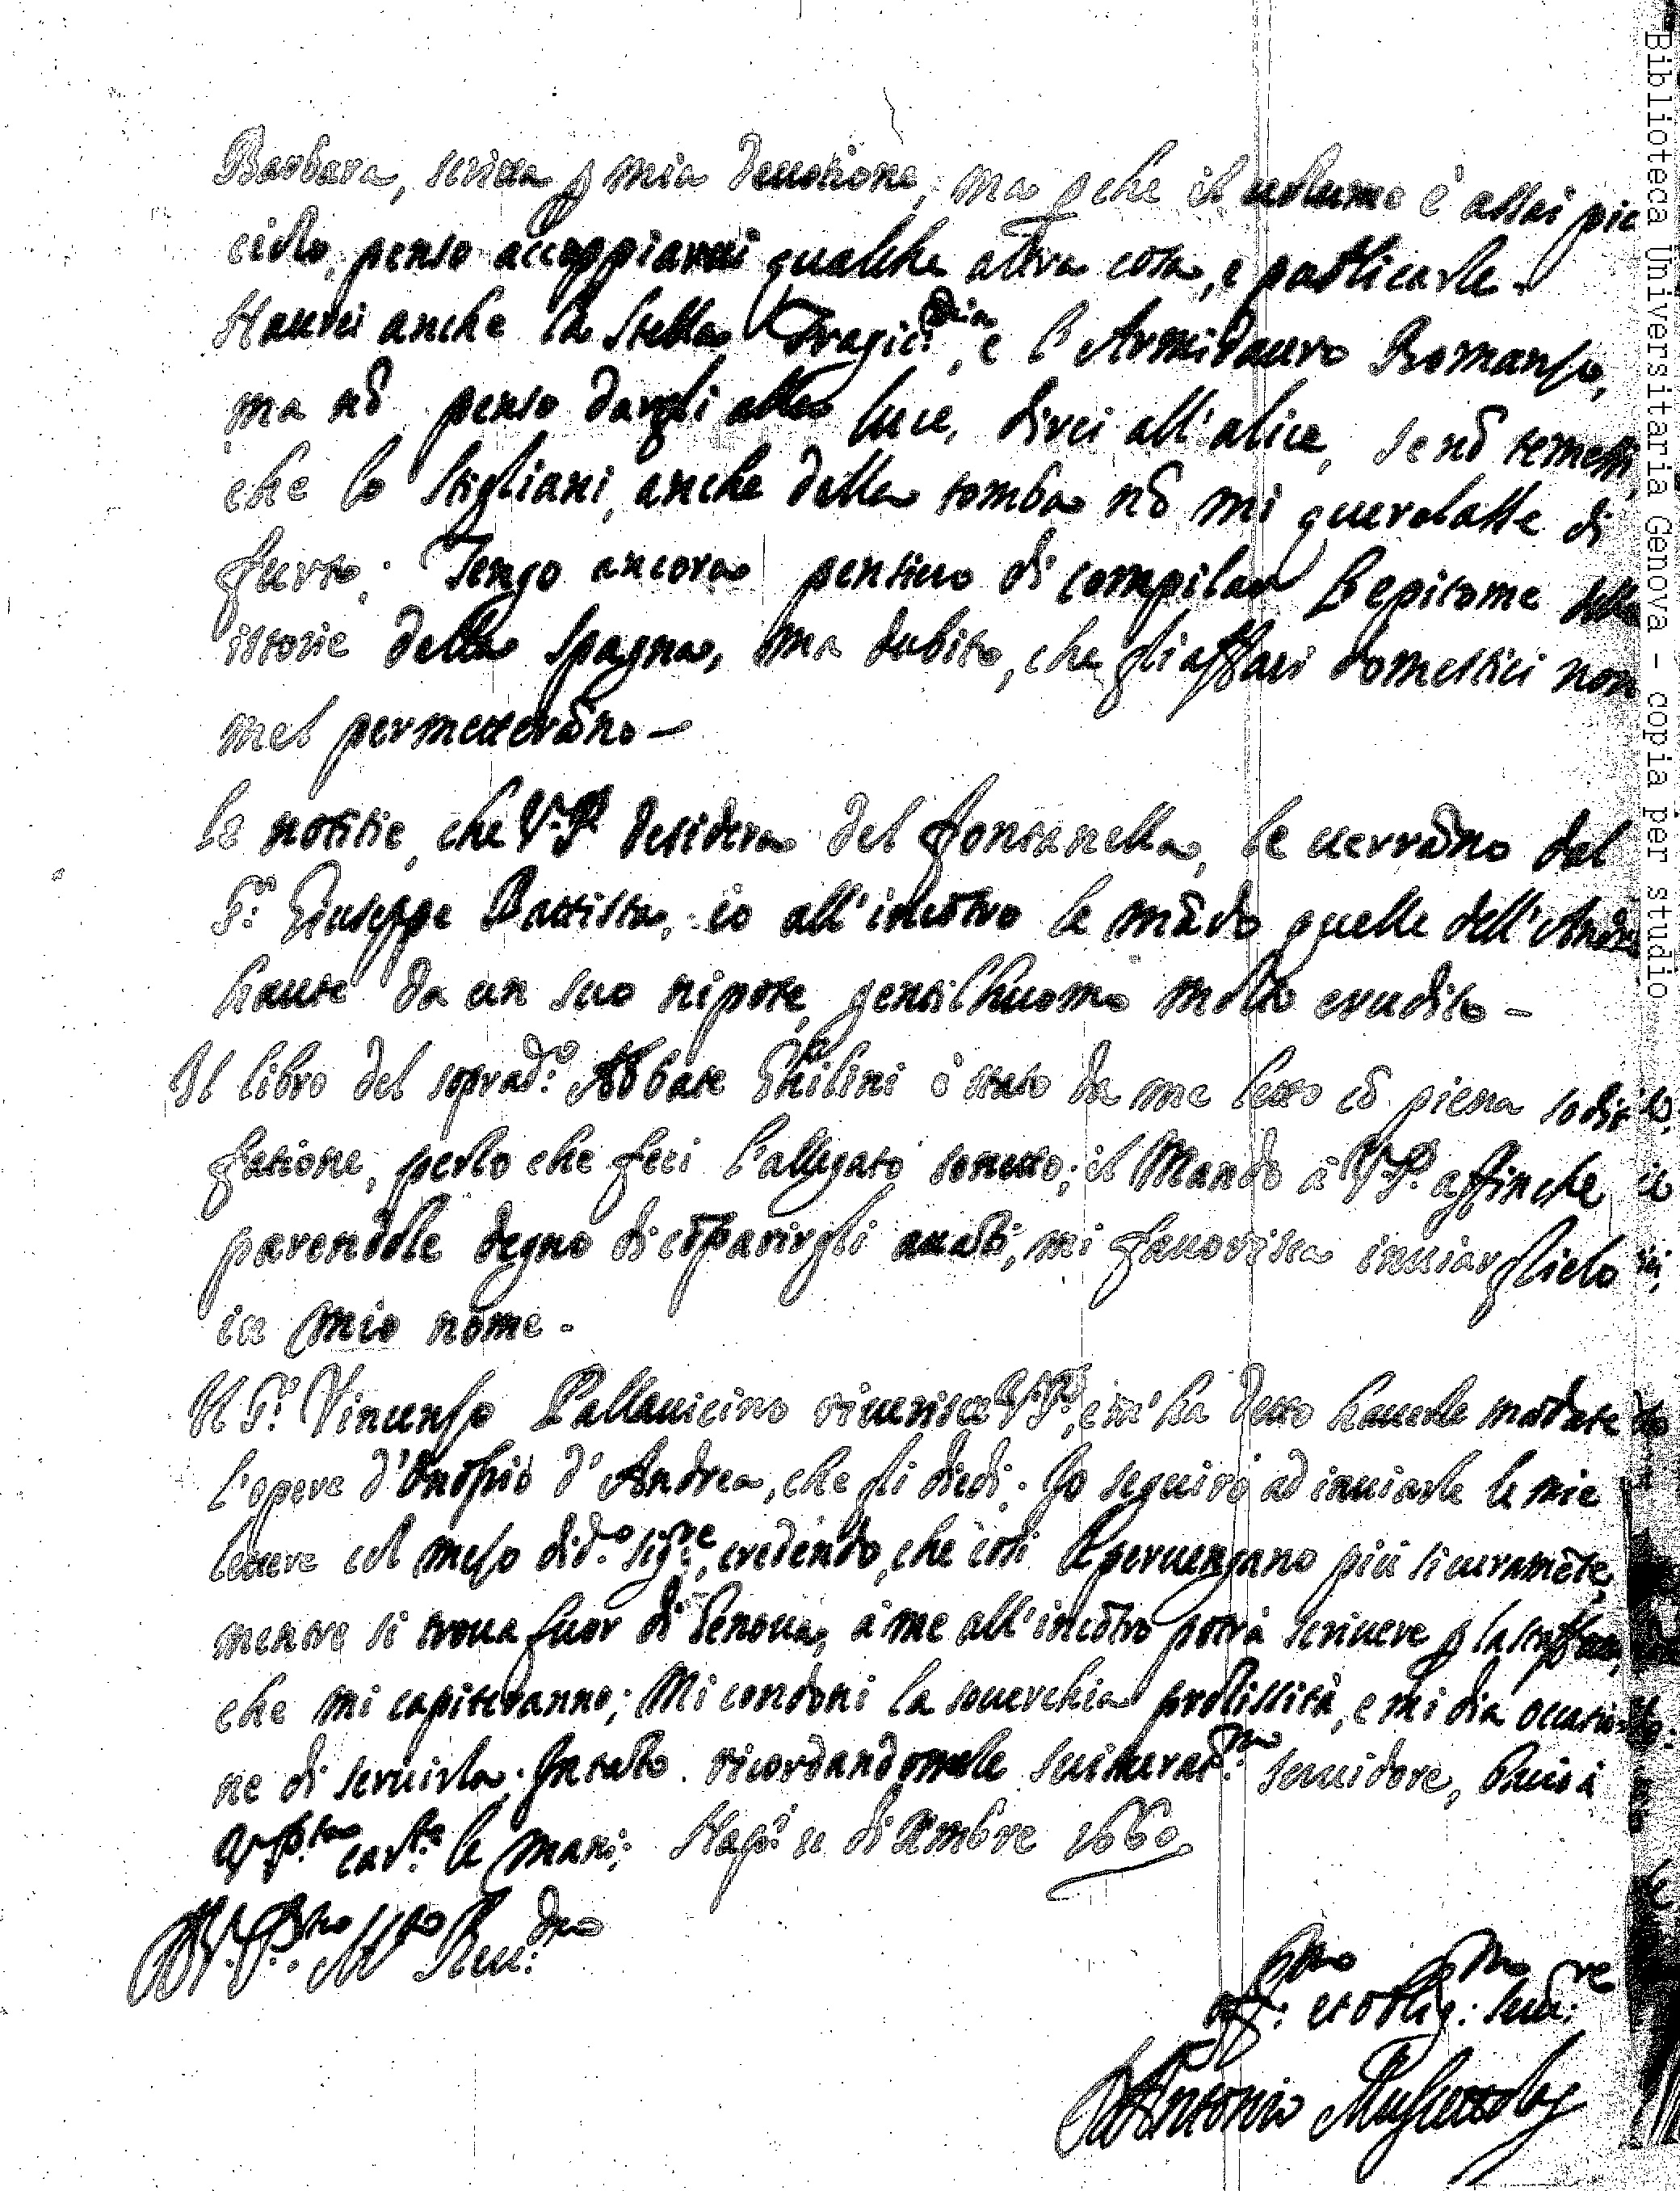 Barbara, scritta p mia deuotione, ma pche il uolume è assai pic
ciolo, penso accoppiarui qualche altra cosa, e publicarle.
Haurei anche la Stella Tragic:dia, e l'Armidauro Romanzo,
ma nō penso dargli alla luce, direi all'alice, se nō temessi,
che lo Stigliani, anche dalla tomba nō mi querelasse di
furto. Tengo ancora pensiero di compilar l'epitome delle
istorie della Spagna, ma dubito, che gli affari domestici non
mel permetterāno -
Le notitie, che V.P. desidera del Fontanella, le uerrāno dal
S.r Giuseppe Battista, io all'incōtro le mādo quelle dell'Andrea
haute da un suo nipote, gentilhuomo molto erudito -
Il libro del soprad.o Abbate Ghilini è stato da me letto cō piena sodis
fatione, perlo che feci l'allegato sonetto; il Mando à V.P. affinche
parendole degno di cōparirgli auāti, mi fauorisca inuiarglielo
in mio nome -
Il S.r Vincenzo Pallauicino riuerisce V.P., e m'ha detto hauerle mādate
l'opere d'Onofrio d'Andrea, che gli diedi. Io seguirò ad inuiarle le mie
lettere col mezo di d.o sig.re, credendo, che così le peruengano più sicuramēte,
mentre si troua fuor di Genoua, à me all'incōtro potrà scriuere p la staffetta,
che mi capiteranno; Mi condoni la souerchia prolissità, e mi dia occasio
ne di seruirla. Intāto ricordandomele suiscerat.mo seruidore, bacio à
V.P. le mani. Nap.i 11 di Xmbre 1660.
Di V.P. M.to Reu.da
Aff.mo et oblig.mo seru.re
Antonio Muscettola